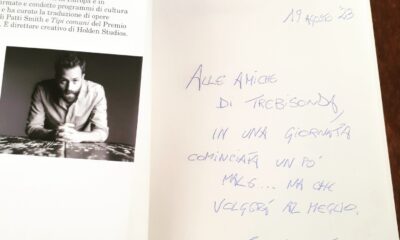 rmato e condotto programmi di cultura
e ha curato la traduzione di opere
di Patti Smith e Tipi comuni del Premio
. È direttore creativo di Holden Studios.
19 AGOSTO '23
ALLE AMICHE
DI TREBISONDA,
IN UNA GIORNATA
COMINCIATA UN PO'
MALE... MA CHE
VOLGERÀ AL MEGLIO.